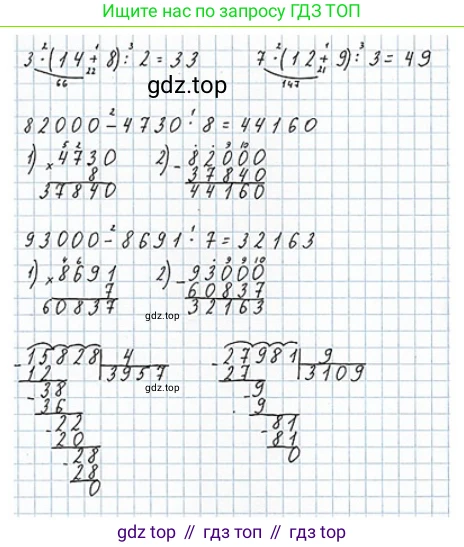 Ищите нас по запросу ГДЗ ТОП
3 · (14 + 8) : 2 = 33 7 · (12 + 9) : 3 = 49
2 1 3 2 1 3
22 21
66 147
gdz.top
82000 - 4730 · 8 = 44160
2 1
1) × 4730 2) - 82000
5 2 9 10
8 37840
37840 44160
93000 - 8691 · 7 = 32163
2 1
1) × 8691 2) - 93000
4 6 9 9 10
7 60837
60837 32163
gdz.top gdz.top
- 15828 | 4 - 27981 | 9
12 3957 27 3109
- 38 - 9
36 9
- 22 - 81
20 81
- 28 0
28
0
gdz.top // гдз.top // гдз.топ